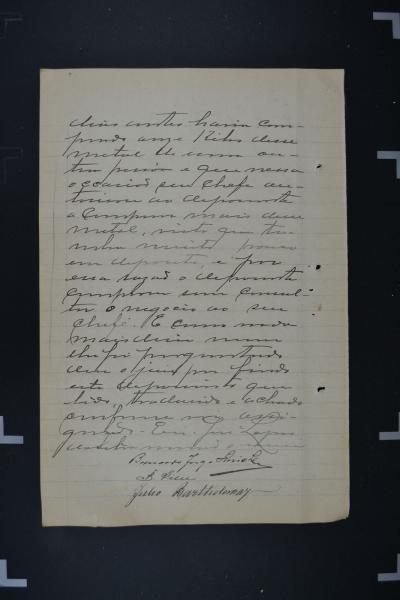 dias antes havia com-
prado onze kilos desse
metal de uma ou-
tra pessôa e que nessa
occasião seu chefe au-
torisou ao depoente
a comprar mais desse
metal, visto que ti-
nha muito pouco
em deposito, e por
essa razão o depoente
comprou sem consul-
tar o negocio ao seu
chefe. E como nada
mais disse nem
lhe foi perguntado
deu o juiz por findo
este depoimento que
lido, traduzido e achado
conforme vai assi-
gnado. Eu,
Jorge
Julio Bartholomay